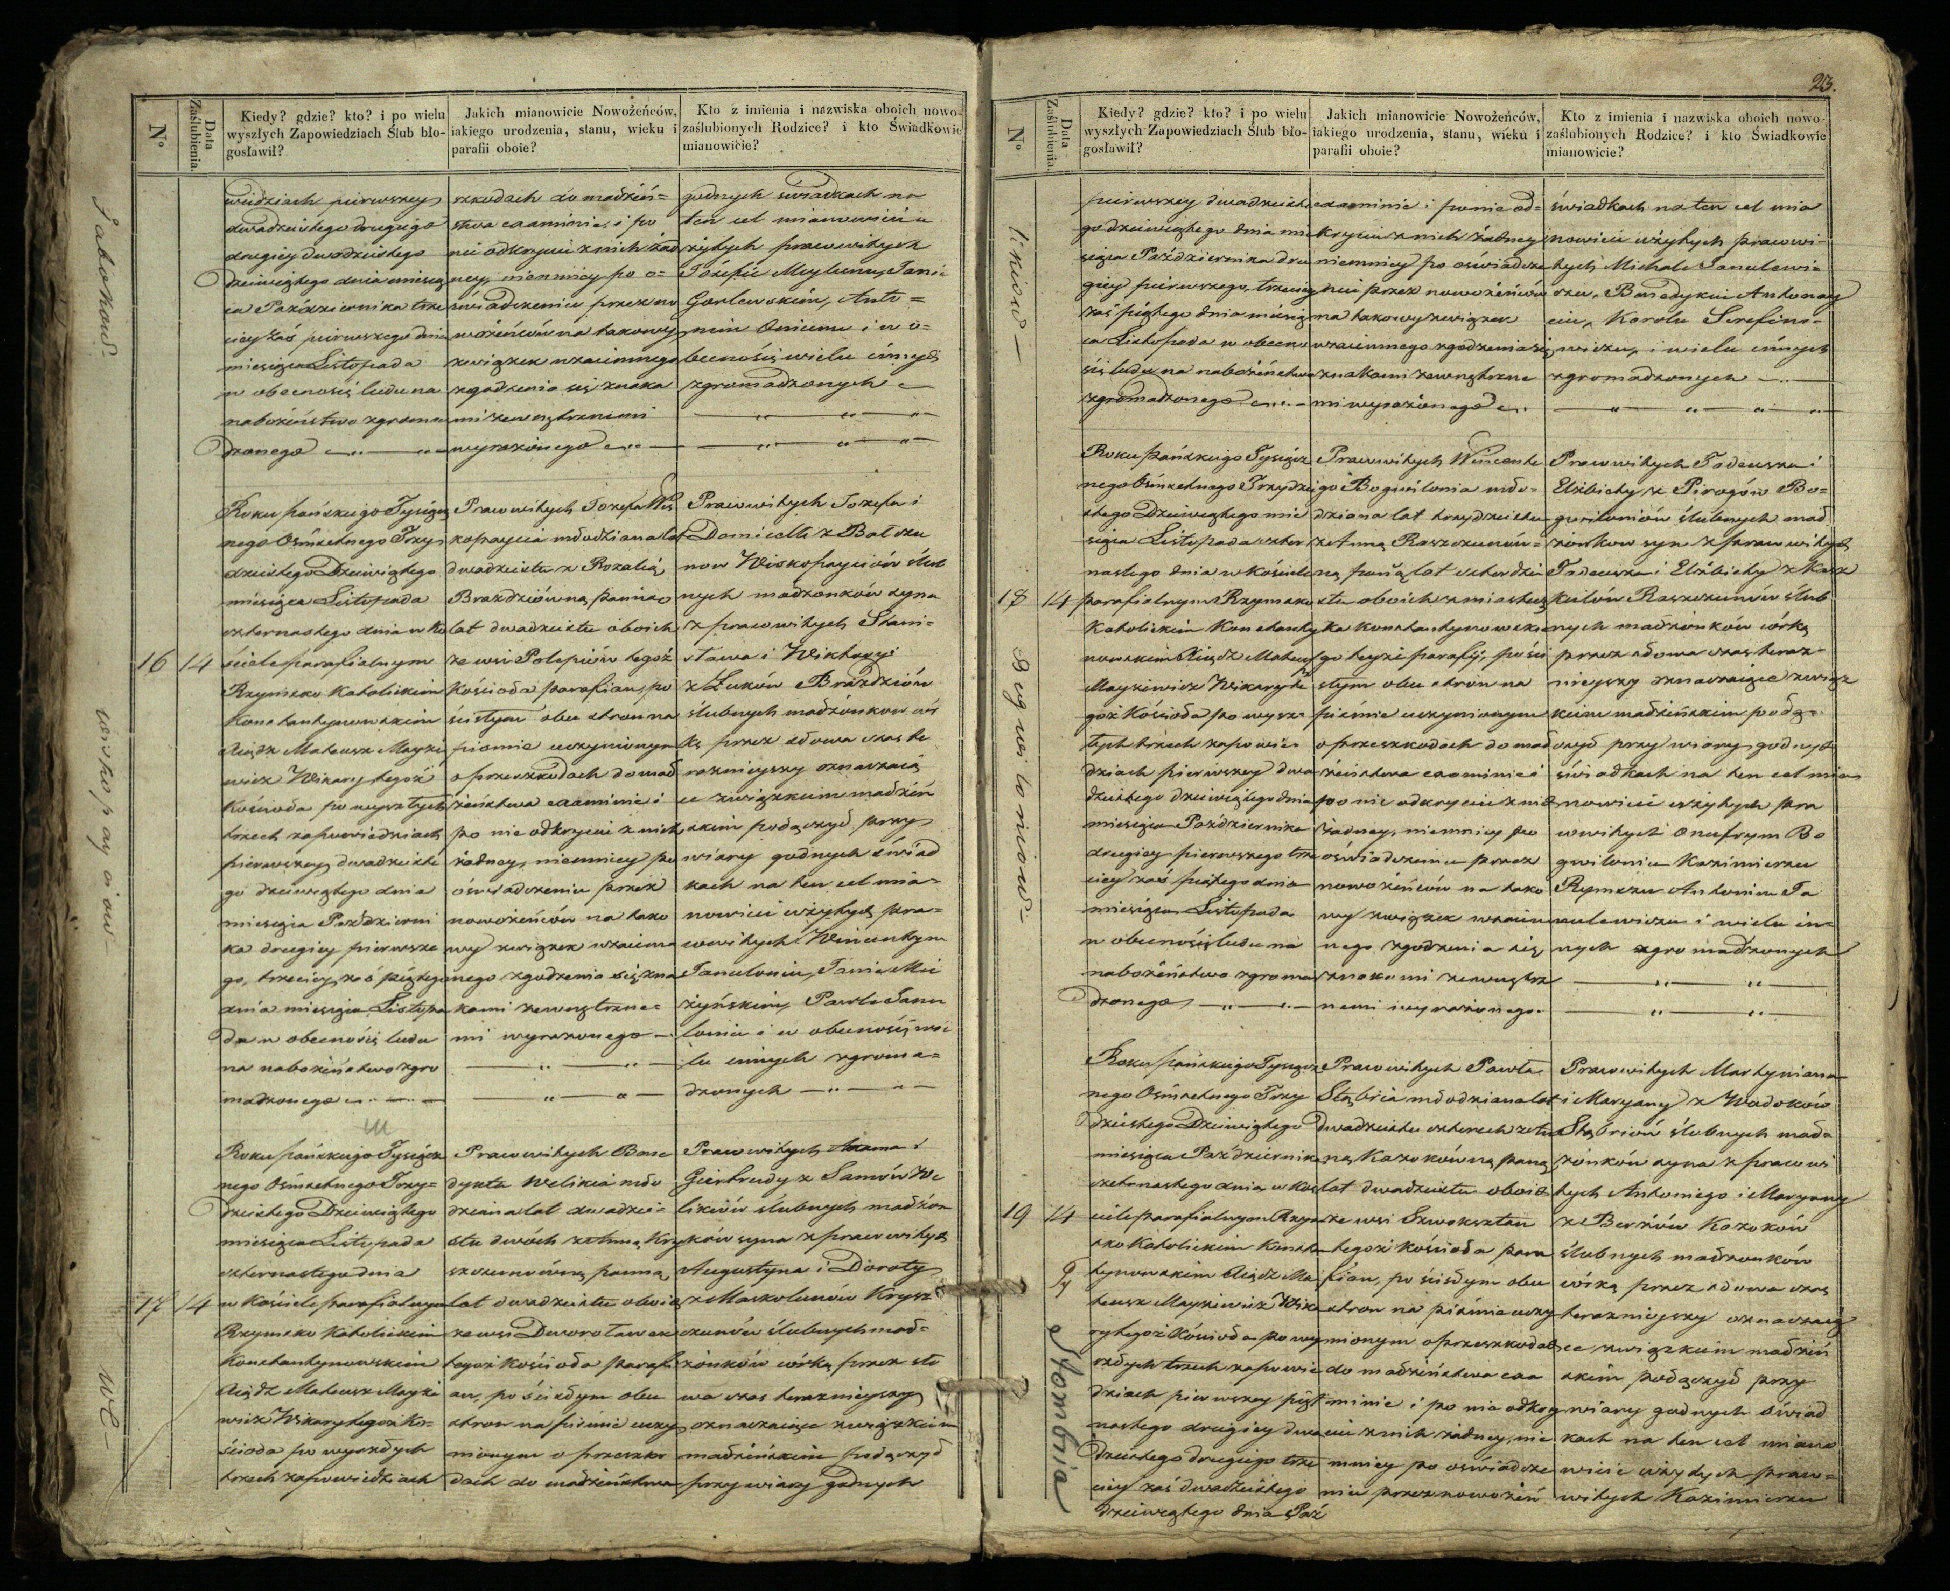 N°
Data Zaślubienia.
Kiedy? gdzie? kto? i po wielu
wyszłych Zapowiedziach Ślub bło-
gosławił?
Jakich mianowicie Nowożeńców,
iakiego urodzenia, stanu, wieku i
parafii oboie?
Kto z imienia i nazwiska oboich nowo-
zaślubionych Rodzice? i kto Świadkowie
mianowicie?
wiedziach pierwszey
dwadziestego drugiego
drugiey dwudziestego
dziewiątego dnia miesią
ca Października trze
ciey zaś pierwszego dnia
miesiąca Listopada
w obecności ludu na
nabożeństwo zgroma
dzonego
szkodach do małżeń=
stwa examinie, i po
nie odkryciu z nich żad
ney, niemniey po o=
świadczeniu przez no
wożeńców na takowy
związek wzaiemnego
zgodzenia się znaka
mi zewnętrznemi
wyrażonego
godnych świadkach na
ten cel mianowicie u
żytych pracowitych
Józefie Janie
Gorlewskim, Anto=
nim i w o=
becności wielu innych
zgromadzonych
16
14
Roku pańskiego Tysiącz
nego Ośmsetnego Trzy
dziestego Dziewiątego
miesiąca Listopada
czternastego dnia w Ko
ściele parafialnym
Rzymsko Katolickim
Konstantynowskim
Xiądz Mateusz Mayzi
ewicz Wikary tegoż
Kościoła po wyszłych
trzech zapowiedziach
pierwszey dwadzieste
go dziewiątego dnia
miesiąca Październi
ka drugiey pierwsze
go, trzeciey zaś piątego
dnia miesiąca Listopa
da w obecności ludu
na nabożeństwo zgro
madzonego
Pracowitych Józefa Wis
kopaycia młodziana lat
dwadzieścia z Rozalią
Brazdziówną panną
lat dwadzieścia oboich
ze wsi Polepiów tegoż
Kościoła parafian, po
ścisłym obu stron na
piśmie uczynionym
o przeszkodach do mał
żeństwa examinie i
po nie odkryciu z nich
żadney, niemniey po
oświadczeniu przez
nowożeńców na tako
wy związek wzaiem
nego zgodzenia się zna
kami zewnętrzne
mi wyrażonego
Pracowitych Józefa i
Domicelli z Bałczu
now Wiskopayciów ślub
nych małżonków syna
z pracowitych Stani=
sława i Wiktoryi
z Łuków Brazdziów
ślubnych małżonkow cór
kę przez słowa czas te
raznieyszy oznaczaią
ce związkiem małżeń
skim połączył, przy
wiary godnych świad
kach na ten cel mia=
nowicie użytych pra=
cowitych Wincentym
Januloniu, Janie
Pawle Janu
loniu i w obecności wie
lu innych zgroma=
dzonych
17
14
Roku pańskiego Tysiącz
nego Ośmsetnego Trzy=
dziestego Dziewiątego
miesiąca Listopada
czternastego dnia
w Kościele parafialnym
Rzymsko Katolickim
Konstantynowskim
Xiądz Mateusz Mayzie
wicz Wikary tegoż Ko=
ścioła po wyszłych
trzech zapowiedziach
Pracowitych Bene
dykta Welikia mło
dziana lat dwadzie=
ścia dwóch z Anną Kry
szczunówną panną
lat dwadzieścia oboich
ze wsi Dworoławek
tegoż kościoła parafi
an, po ścisłym obu
stron na piśmie uczy
nionym o przeszko
dach do małżeństwa
Pracowitych Adama i
Giertrudy z Samów We
likiów ślubnych małżon
ków syna z pracowitych
Augustyna i Doroty
z Maskolunów Krysz
czunów ślubnych mał=
żonków córką przez sło
wa czas teraznieyszy
oznaczaiące związkiem
małżeńskim połączył
przy wiary godnych
Wiskopayciow
We
23.
N°
Data Zaślubienia.
Kiedy? gdzie? kto? i po wielu
wyszłych Zapowiedziach Ślub bło-
gosławił?
Jakich mianowicie Nowożeńców,
iakiego urodzenia, stanu, wieku i
parafii oboie?
Kto z imienia i nazwiska oboich nowo-
zaślubionych Rodzice? i kto Świadkowie
mianowicie?
likiow
pierwszey dwudzieste
go dziewiątego dnia mie
siąca Października dru
giey pierwszego, trzeciey
zaś piątego dnia miesią
ca Listopada w obecno
ści ludu na nabożeństwo
zgromadzonego
examinie i po nie od=
kryciu z nich żadney
niemniey po oświadcze
niu przez nowożeńców
na takowy związek
wzaiemnego zgodzenia się
znakami zewnętrzne
mi wyrażonego
świadkach na ten cel mia
nowicie użytych pracowi=
tych Michale Janulewi=
czu, Benedykcie Antonay
ciu, Karolu Serefino=
wiczu, i wielu innych
zgromadzonych
18
14
Roku pańskiego Tysiącz
nego Ośmsetnego Trzydzie
stego Dziewiątego mie
siąca Listopada czter
nastego dnia w Kościele
parafialnym Rzymsko
Katolickim Konstanty
nowskim Xiądz Mateusz
Mayziewicz Wikary te
goż Kościoła po wysz=
łych trzech zapowie=
dziach pierwszey dwa
dziestego dziewiątego dnia
miesiąca Października
drugiey pierwszego trze
ciey zaś piątego dnia
miesiąca Listopada
w obecności ludu na
nabożeństwo zgroma
dzonego
Pracowitych Wincente
go Bogwilonia mło=
dziana lat trzydzieście
z Anną Raszczunów=
ną panną lat czterdzie
stu oboich z miastecz
ka Konstantynowskie
go teyże parafij, po ści
słym obu stron na
piśmie uczynionym
o przeszkodach do mał
żeństwa examinie i
po nie odkryciu z nich
żadney, niemniey po
oświadczeniu przez
nowożeńców na tako
wy związek wzaiem
nego zgodzenia się
znakami zewnętrz
nemi wyrażonego
Pracowitych Tadeusza i
Elżbiety z Pirogów Bo=
gwiloniów ślubnych mał
żonkow syna z pracowitych
Tadeusza i Elżbiety z
Raszczunów ślub
nych małżonków córką
przez słowa czas teraz=
nieyszy oznaczaiące związ
kiem małżeńskim połą=
czył przy wiary godnych
świadkach na ten cel mia
nowicie użytych pra
cowitych Onufrym Bo
gwiloniu Kazimierzu
Rymszu Antonim Ja
nulewiczu i wielu in=
nych zgromadzonych
Bogwiloniow
19
14
Roku pańskiego Tysiącz
nego Ośmsetnego Trzy
dziestego Dziewiątego
miesiąca Października
czternastego dnia w Koś
ciele parafialnym Rzym
sko Katolickim Konstan
tynowskim Xiądz Ma
teusz Mayziewicz Wika
ry tegoż Kościoła po wy
szłych trzech zapowie
dziach pierwszey pięt
nastego drugiey dwa
dziestego drugiego trze
ciey zaś dwadziestego
dziewiątego dnia Paź
Pracowitych Pawła
Stąbria młodziana lat
dwadzieścia czterech z
ną Kozokówną panną
lat dwadzieścia oboich
ze wsi Szwoksztan
tegoż kościoła para
fian, po ścisłym obu
stron na piśmie uczy
nionym o przeszkodach
do małżeństwa exa
minie i po nie odkry
ciu z nich żadney, nie
mniey po oświadcze
niu przez nowożeń
Pracowitych Martyniana
i Maryany z Wodoków
Stąbriów ślubnych mał
żonków syna z pracowi
tych Antoniego i Maryany
z Berżów Kozoków
ślubnych małżonków
córką przez słowa czas
teraznieyszy oznaczaią
ce, związkiem małżeń
skim połączył przy
wiary godnych świad
kach na ten cel miano
wicie użytych praco=
witych Kazimierzu
Stombria